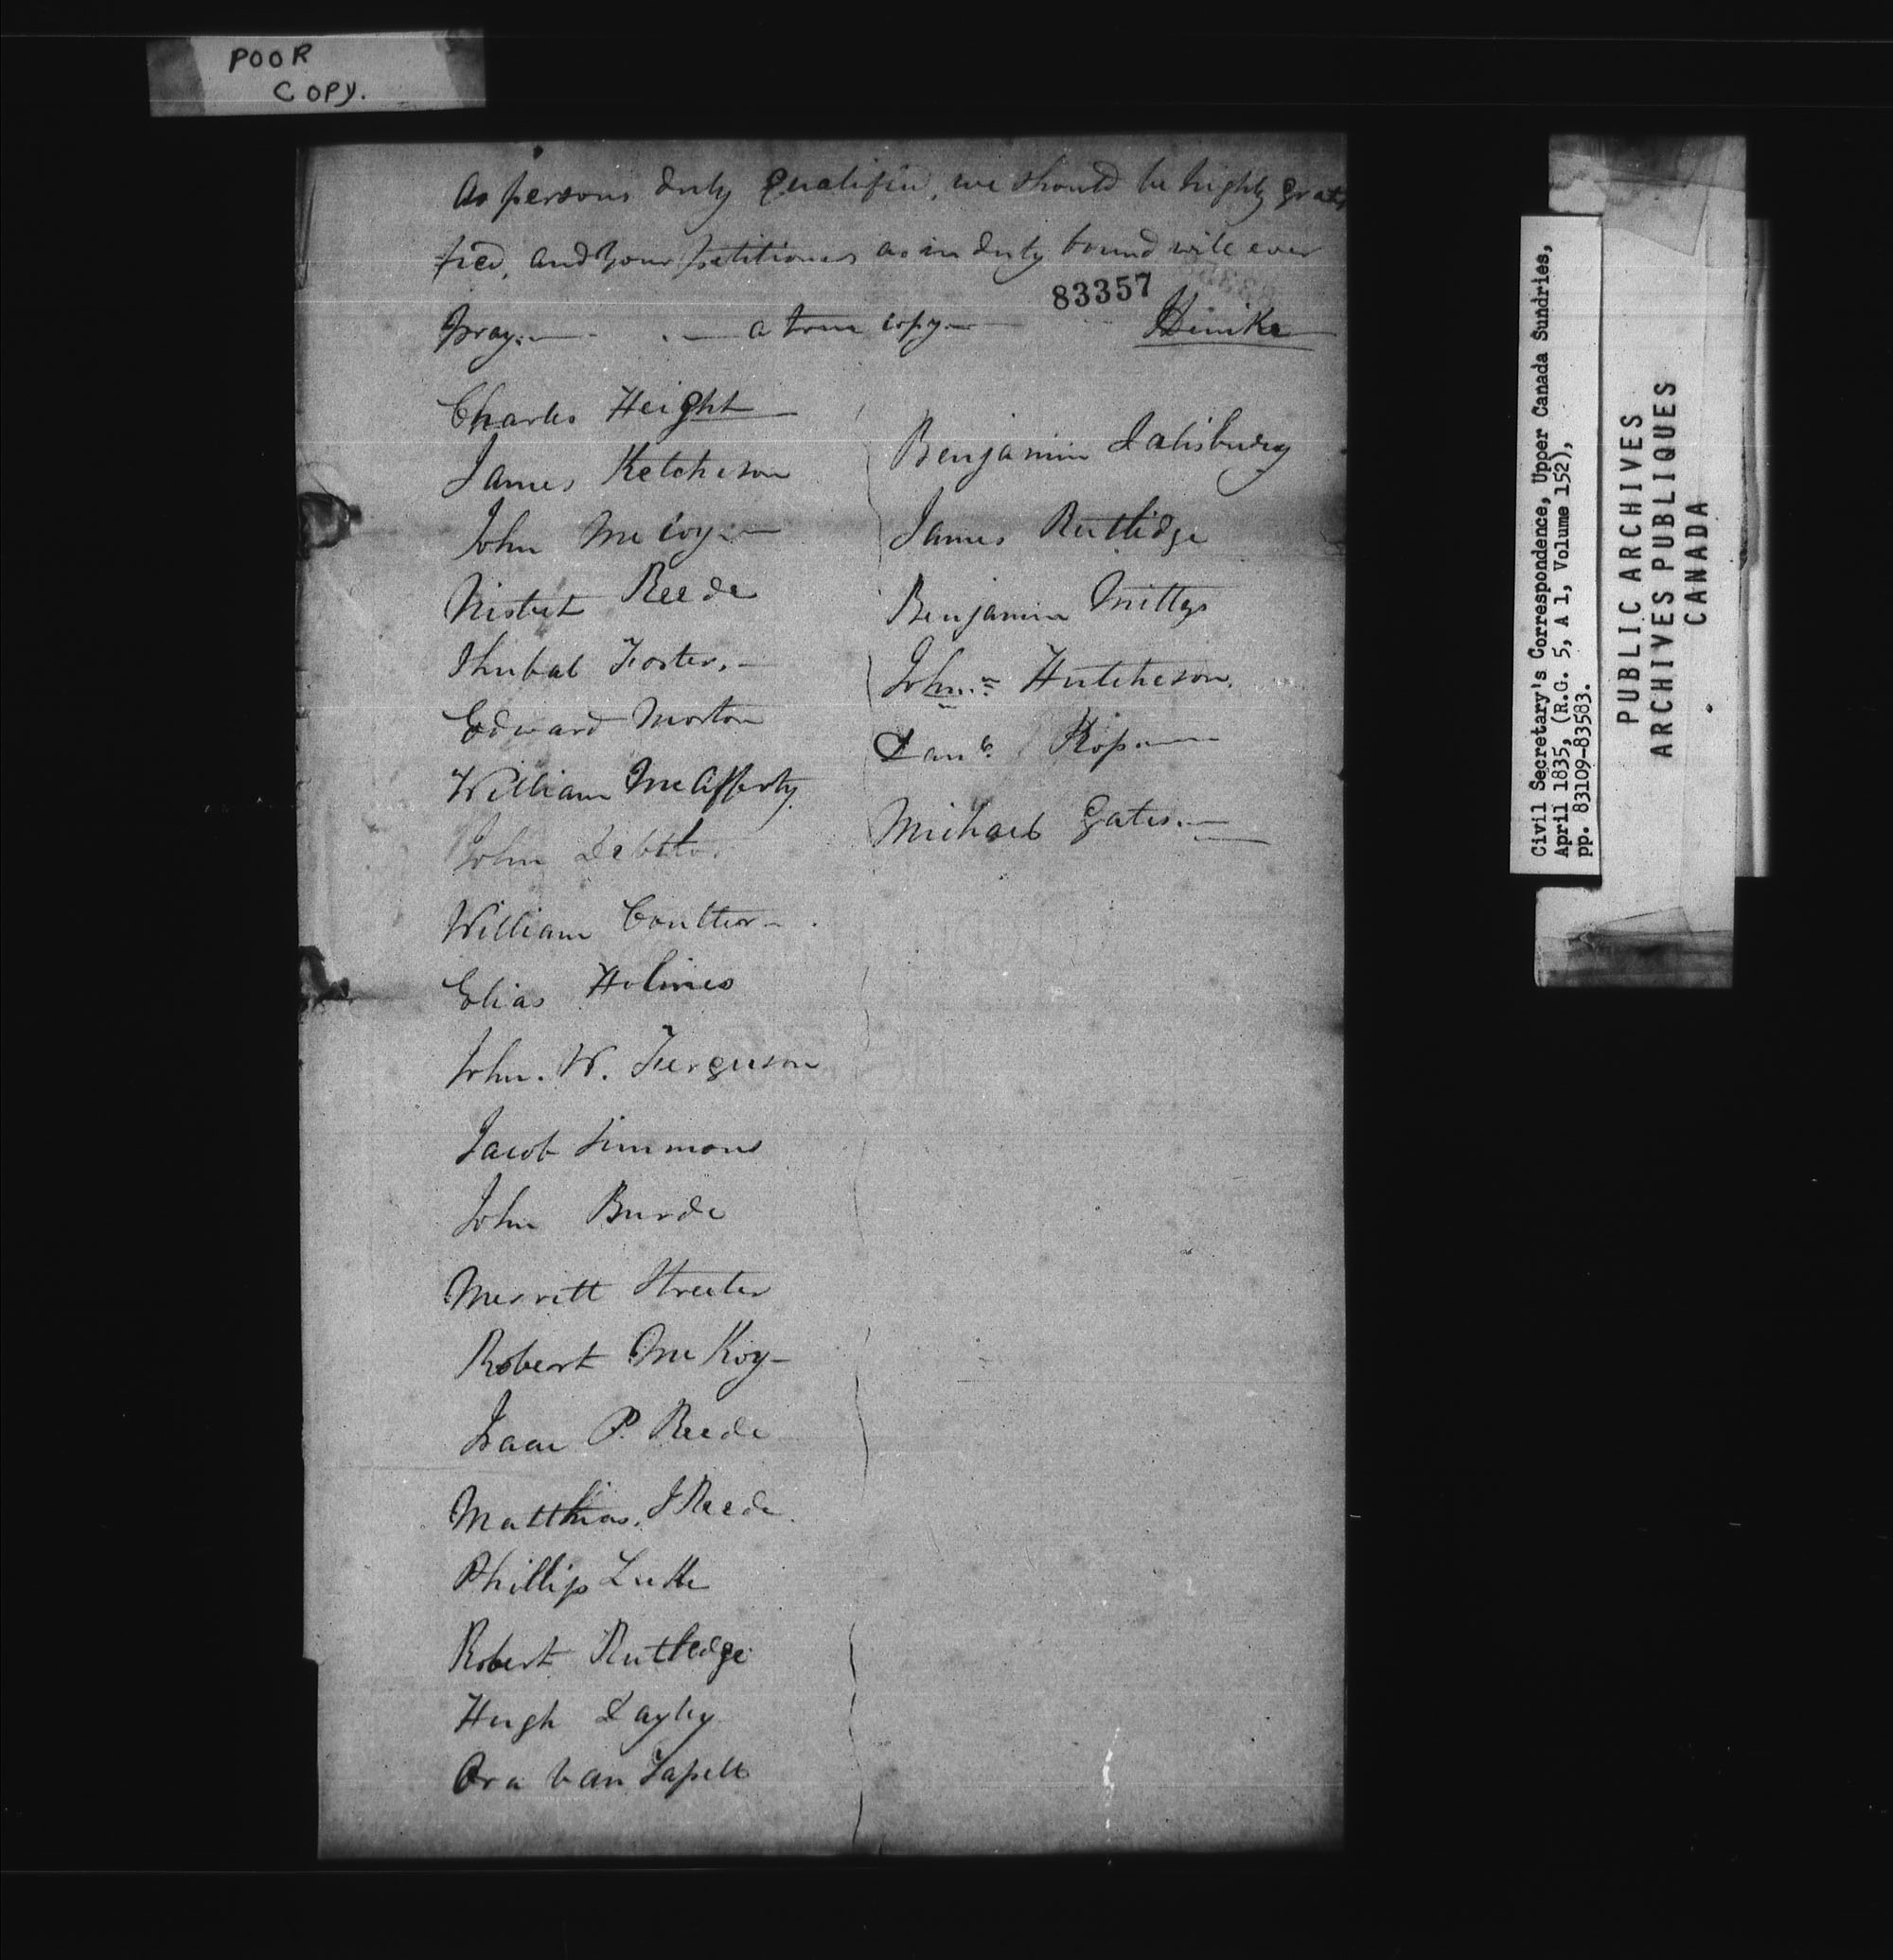 POOR
COPY.
As persons duly qualified, we should be highly grati
fied, and your petitioners as in duty bound will ever
83357
pray.— — a true copy—
Charles Height
James Ketcheson
John McCoy
Nisbet Reede
Shubal Foster
Edward Morton
William McAfferty
John
William Coulter
Elias Holmes
John. W. Ferguson
Jacob Simmons
John Burde
Merritt Streeter
Robert McKoy
Isaac P. Reede
Matthias. J Reede.
Phillip Luke
Robert Rutledge
Hugh Dayley
Ora Van Tapell
Benjamin Salisbury
James Rutlidge
Benjamin Mittys
John Hutcheson.
Danl.
Michael Gates.
Civil Secretary's Correspondence, Upper Canada Sundries,
April 1835, (R.G. 5, A 1, Volume 152),
pp. 83109-83583.
PUBLIC ARCHIVES
ARCHIVES PUBLIQUES
CANADA